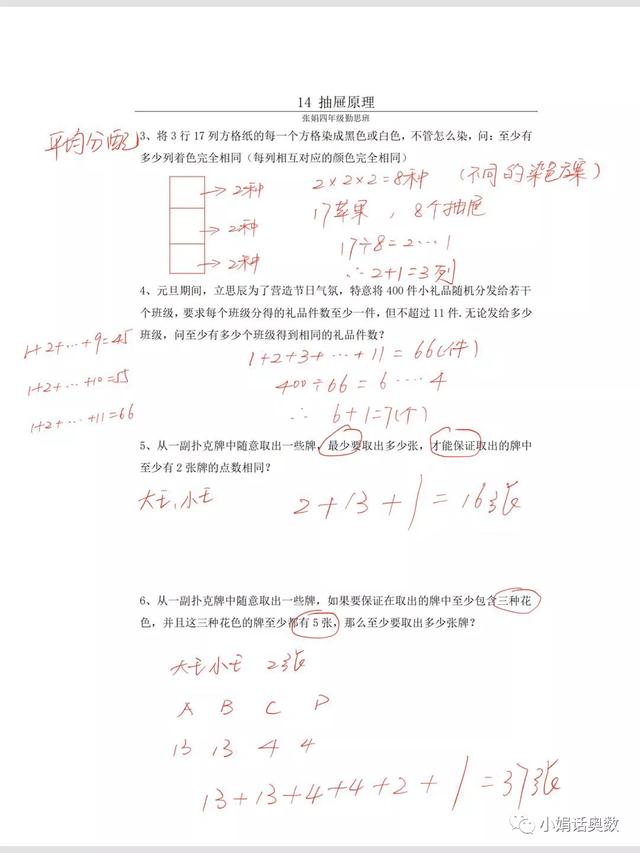 14 抽屉原理
张娟四年级勤思班
平均分配
3、将 3 行 17 列方格纸的每一个方格染成黑色或白色，不管怎么染，问：至少有
多少列着色完全相同（每列相互对应的颜色完全相同）
→2种
2×2×2=8种 （不同的染色方案）
→2种
17苹果，8个抽屉
17÷8=2…1
→2种
∴2+1=3列
4、元旦期间，立思辰为了营造节日气氛，特意将 400 件小礼品随机分发给若干
个班级，要求每个班级分得的礼品件数至少一件，但不超过 11 件. 无论发给多少
班级，问至少有多少个班级得到相同的礼品件数？
1+2+…+9=45
1+2+…+10=55
1+2+…+11=66
1+2+3+…+11=66(件)
400÷66=6….4
∴ 6+1=7(个)
5、从一副扑克牌中随意取出一些牌，最少要取出多少张，才能保证取出的牌中
至少有 2 张牌的点数相同？
大王、小王
2+13+1=16张
6、从一副扑克牌中随意取出一些牌，如果要保证在取出的牌中至少包含三种花
色，并且这三种花色的牌至少都有 5 张，那么至少要取出多少张牌？
大王小王 2张
A B C D
13 13 4 4
13+13+4+4+2+1=37张
小娟话奥数